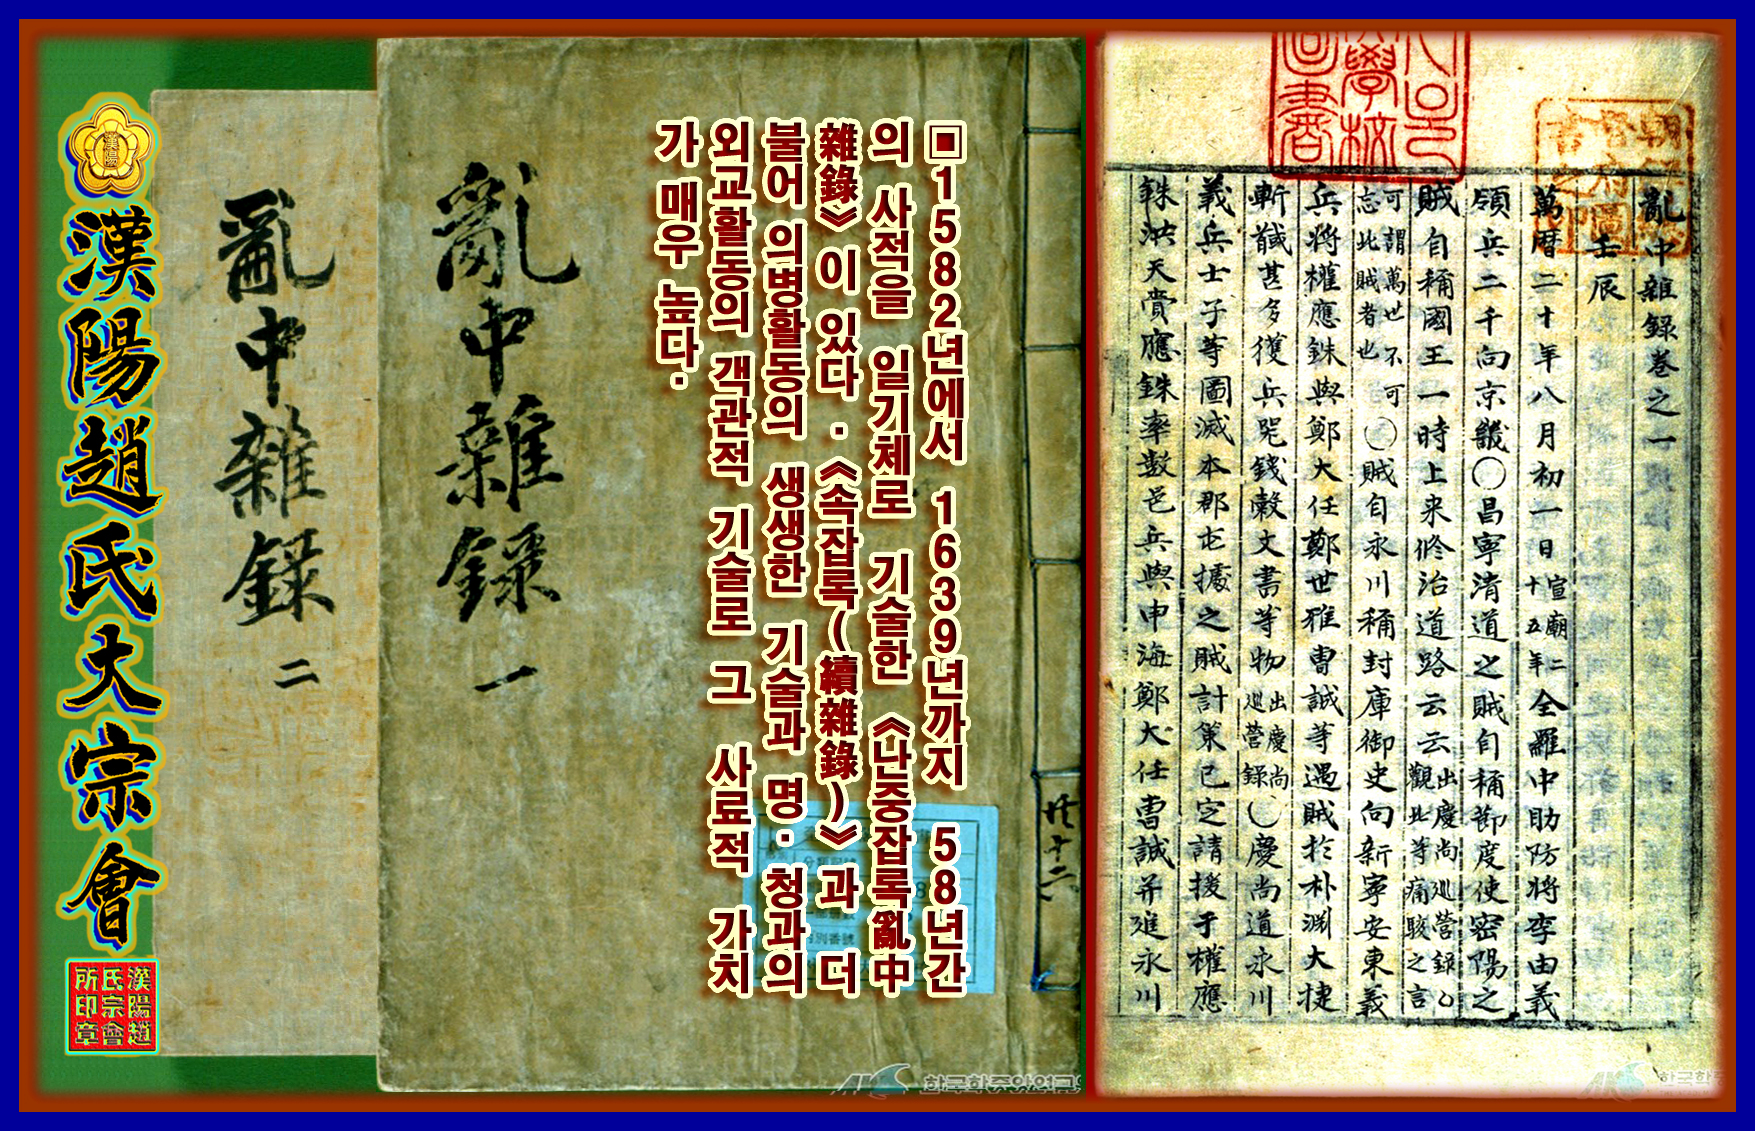 漢陽
漢陽趙氏大宗會
漢陽趙
氏宗會
所印章
亂中雜錄 二
亂中雜錄 一
共十二
▣1582년에서 1639년까지 58년간
의 사적을 일기체로 기술한 《난중잡록亂中
雜錄》이 있다.《속잡록(續雜錄)》과 더
불어 의병활동의 생생한 기술과 명·청과의
외교활동의 객관적 기술로 그 사료적 가치
가 매우 높다.
亂中雜錄卷之一
壬辰
萬曆二十年八月初一日宣廟二十五年全羅中助防將李由義
領兵二千向京畿○昌寧淸道之賊自稱節度使密陽之
賊自稱國王一時上來修治道路云云出慶尚巡營錄○觀此等痛駭之言
可謂萬世不可忘此賊者也○賊自永川稱封庫御史向新寧安東義
兵將權應銖與鄭大任鄭世雅曺誠等遇賊於朴淵大捷
斬馘甚多獲兵器錢穀文書等物出慶尚巡營錄○慶尚道永川
義兵士子等圖滅本郡屯據之賊計策已定請援于權應
銖洪天賚應銖率數邑兵與申海鄭大任曺誠幷進永川
한국학중앙연구원
한국학